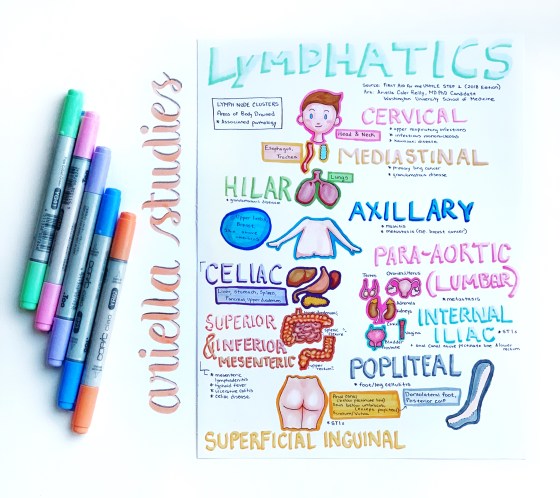 LYMPHATICS
Source: FIRST AID for the USMLE STEP 1 (2018 Edition)
Washington University School of Medicine
LYMPH NODE CLUSTERS
Areas of Body Drained
Associated pathology
CERVICAL
upper respiratory infections
infectious mononucleosis
Kawasaki disease
Head & Neck
Esophagus,
Trachea
MEDIASTINAL
primary lung cancer
granulomatous disease
HILAR
granulomatous disease
Lungs
AXILLARY
mastitis
metastasis (esp. breast cancer)
Upper limb,
Breast,
PARA-AORTIC
(LUMBAR)
metastasis
Testes
Ovaries/Uterus
Kidneys
CELIAC
Liver, Stomach, Spleen,
Pancreas, Upper Duodenum
SUPERIOR
& INFERIOR
MESENTERIC
mesenteric
lymphadenitis
typhoid fever
ulcerative colitis
celiac disease
INTERNAL
ILIAC
STIs
POPLITEAL
foot/leg cellulitis
Dorsolateral foot,
Posterior calf
Anal canal
(below pectinate line)
Skin below umbilicus
(except popliteal)
STIs
SUPERFICIAL INGUINAL
ariella studies
copic